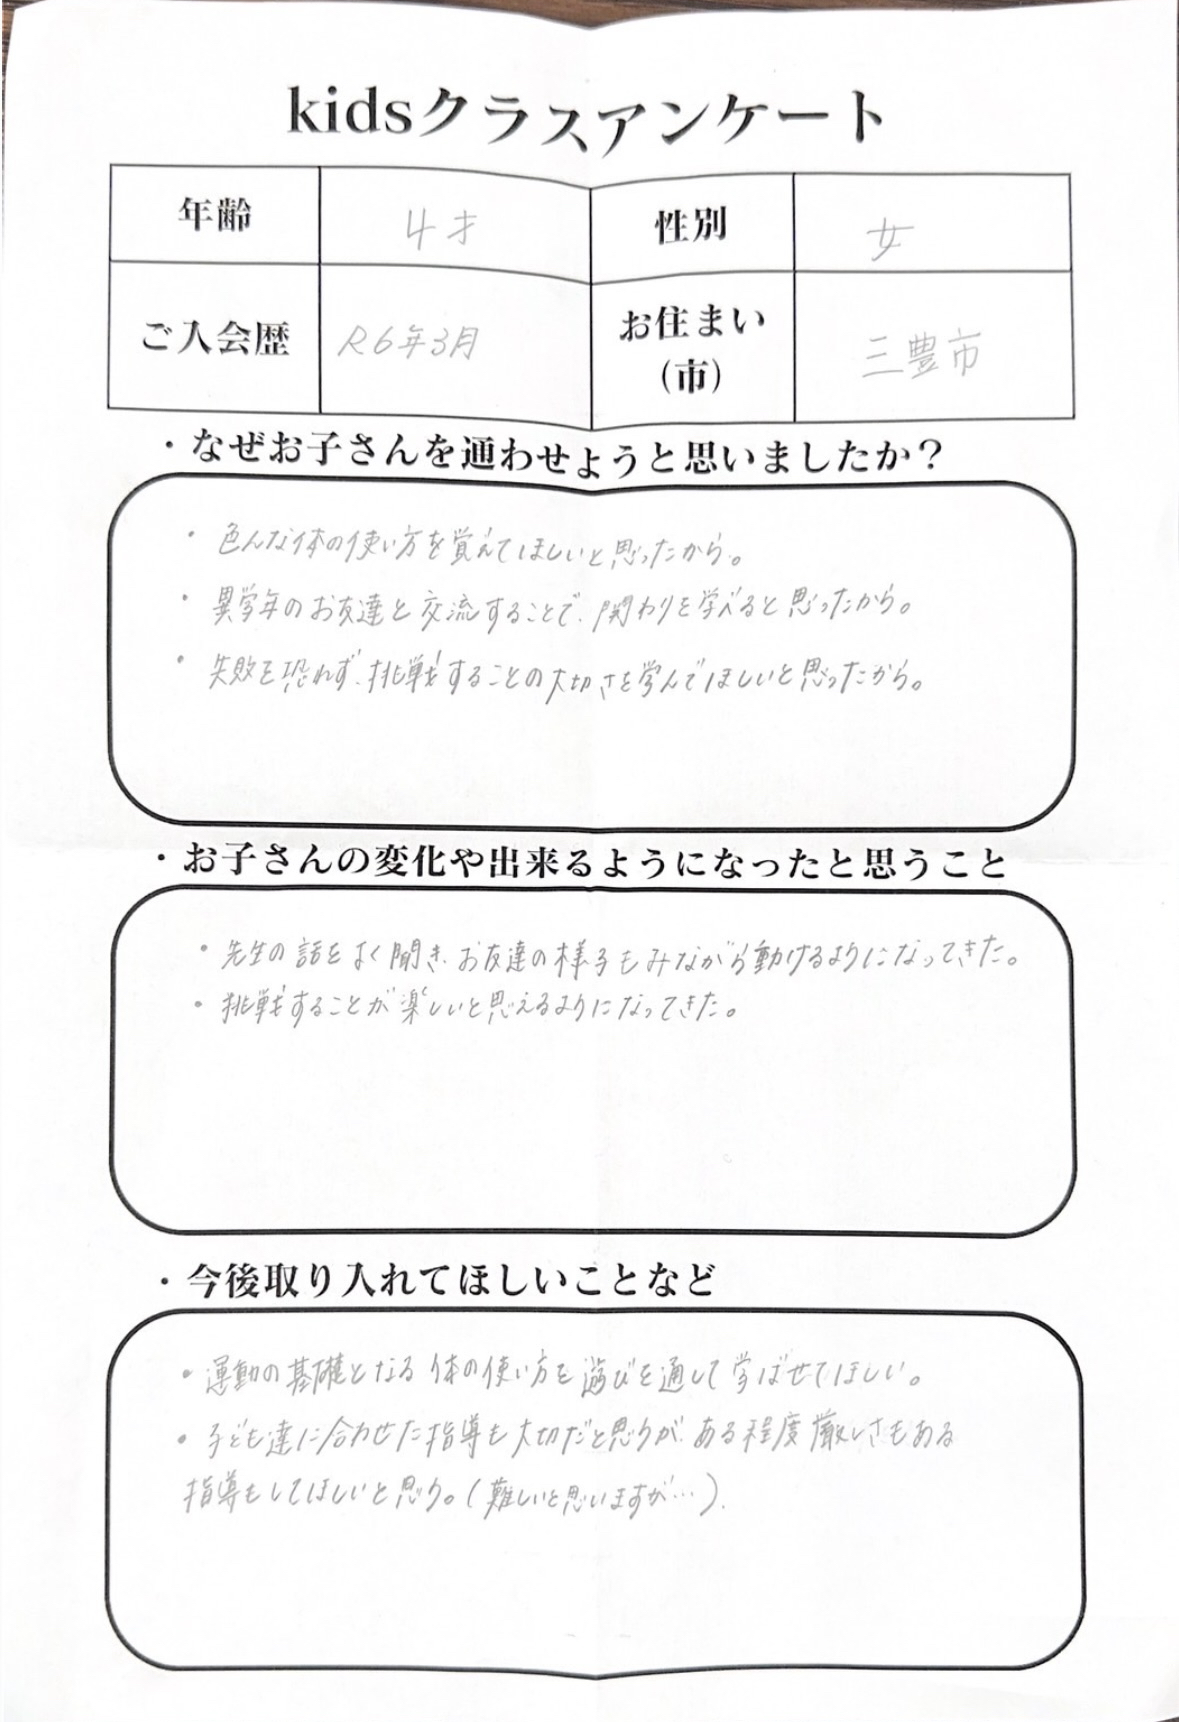 kidsクラスアンケート
年齢 4才 性別 女
ご入会歴 R6年3月 お住まい(市) 三豊市
・なぜお子さんを通わせようと思いましたか?
・色んな体の使い方を覚えてほしいと思ったから。
・異学年のお友達と交流することで、関わりを学べると思ったから。
・失敗を恐れず、挑戦することの大切さを学んでほしいと思ったから。
・お子さんの変化や出来るようになったと思うこと
・先生の話をよく聞き、お友達の様子もみながら動けるようになってきた。
・挑戦することが楽しいと思えるようになってきた。
・今後取り入れてほしいことなど
・運動の基礎となる体の使い方を遊びを通して学ばせてほしい。
・子ども達に合わせた指導も大切だと思うが、ある程度厳しさもある
指導もしてほしいと思う。(難しいと思いますが…).